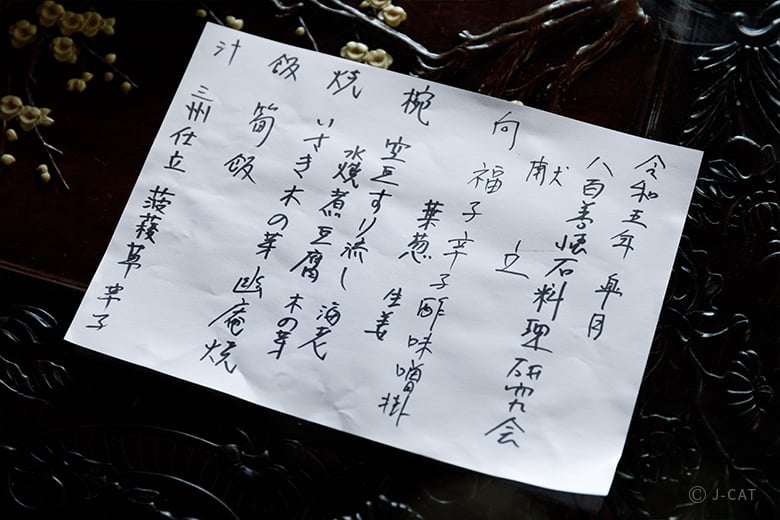 令和五年 皐月
八百善懐石料理研究会
献立
向 福子 辛子酢味噌掛
葉葱 生姜
椀 空豆すり流し 海老
水焼煮豆腐 木の芽
焼 いさき木の芽幽庵焼
飯 筍飯
汁 三州仕立 菠薐草 辛子
© J-CAT